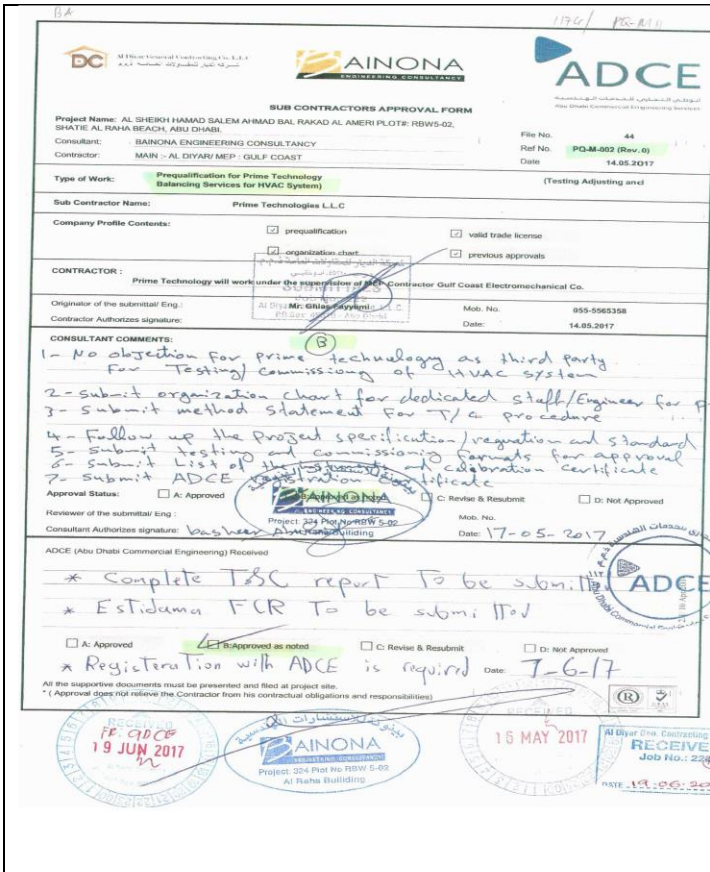 BA
1174/ PQ-M11
DC Al Diyar General Contracting Co. L.L.C
BAINONA
ENGINEERING CONSULTANCY
ADCE
Abu Dhabi Commercial Engineering Services
SUB CONTRACTORS APPROVAL FORM
Project Name: AL SHEIKH HAMAD SALEM AHMAD BAL RAKAD AL AMERI PLOT#: RBW5-02,
SHATIE AL RAHA BEACH, ABU DHABI.
File No. 44
Consultant: BAINONA ENGINEERING CONSULTANCY
Ref No. PQ-M-002 (Rev. 0)
Contractor: MAIN :- AL DIYAR/ MEP : GULF COAST
Date 14.05.2017
Type of Work: Prequalification for Prime Technology (Testing Adjusting and
Balancing Services for HVAC System)
Sub Contractor Name: Prime Technologies L.L.C
Company Profile Contents:
prequalification
valid trade license
organization chart
previous approvals
CONTRACTOR :
Prime Technology will work under the supervision of MEP Contractor Gulf Coast Electromechanical Co.
Originator of the submittal/ Eng.: Mr. Ghias Fayyumi
Mob. No. 055-5565358
Contractor Authorizes signature:
Date: 14.05.2017
CONSULTANT COMMENTS: B
1- No objection for prime technology as third party
For Testing/ commissiong of HVAC system
2- submit organization chart for dedicated staff/Engineer for p
3- submit method statement for T/C procedure
4- Follow up the project specification/reguation and standard
5- submit testing and commissioning formats for approval
6- submit List of the and calobration certificate
7- Submit ADCE registration certificate
Approval Status: A: Approved B:Approved as noted C: Revise & Resubmit D: Not Approved
Reviewer of the submittal/ Eng :
Mob. No.
Consultant Authorizes signature: basheer
Date: 17-05-2017
BAINONA
ENGINEERING CONSULTANCY
Project: 324 Plot No RBW 5-02
Al Raha Building
ADCE (Abu Dhabi Commercial Engineering) Received
* Complete T&C report To be submitted
* Estidama FCR To be submitted
ADCE
A: Approved B:Approved as noted C: Revise & Resubmit D: Not Approved
* Registeration with ADCE is required Date: 7-6-17
All the supportive documents must be presented and filed at project site.
* ( Approval does not relieve the Contractor from his contractual obligations and responsibilities)
RECEIVED
19 JUN 2017
بينونة للاستشارات الهندسية
BAINONA
ENGINEERING CONSULTANCY
Project: 324 Plot No RBW 5-02
Al Raha Building
RECEIVED
15 MAY 2017
Al Diyar Gen. Contracting
RECEIVE
Job No.: 224
DATE 19-06-20